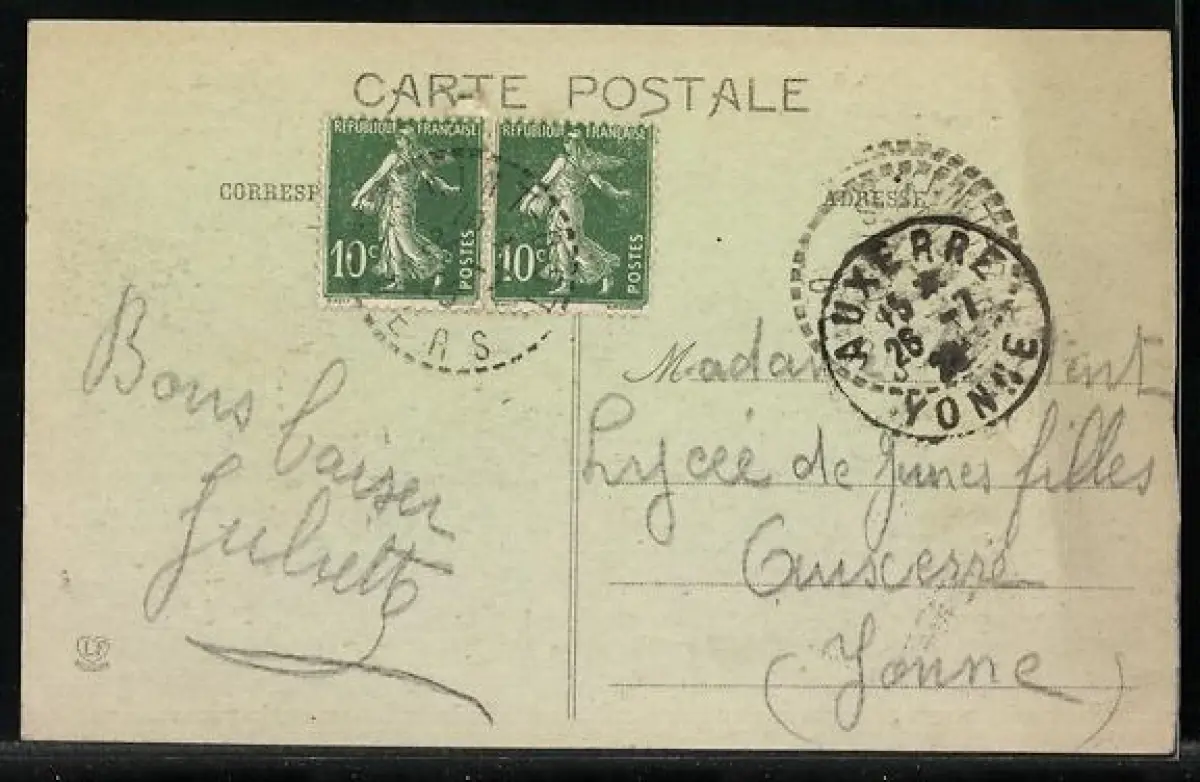 CARTE POSTALE
RÉPUBLIQUE FRANÇAISE
10c POSTES
RÉPUBLIQUE FRANÇAISE
10c POSTES
CORRESP
ADRESSE
ERS
AUXERRE
15
26 -7
YONNE
Bons baiser
Juliette
Madame
Lycée de Jeunes filles
Auxerre
(Yonne)